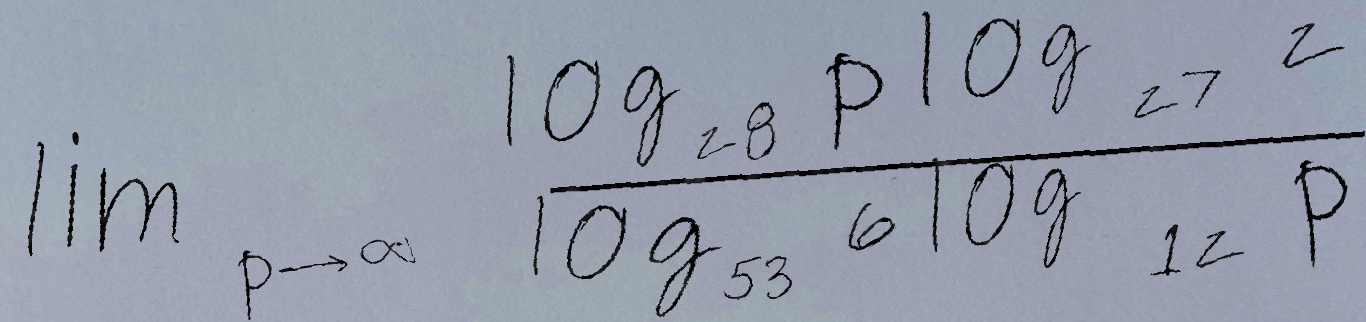 lim p→∞ log 28 p log 27 2
log 53 6 log 12 p